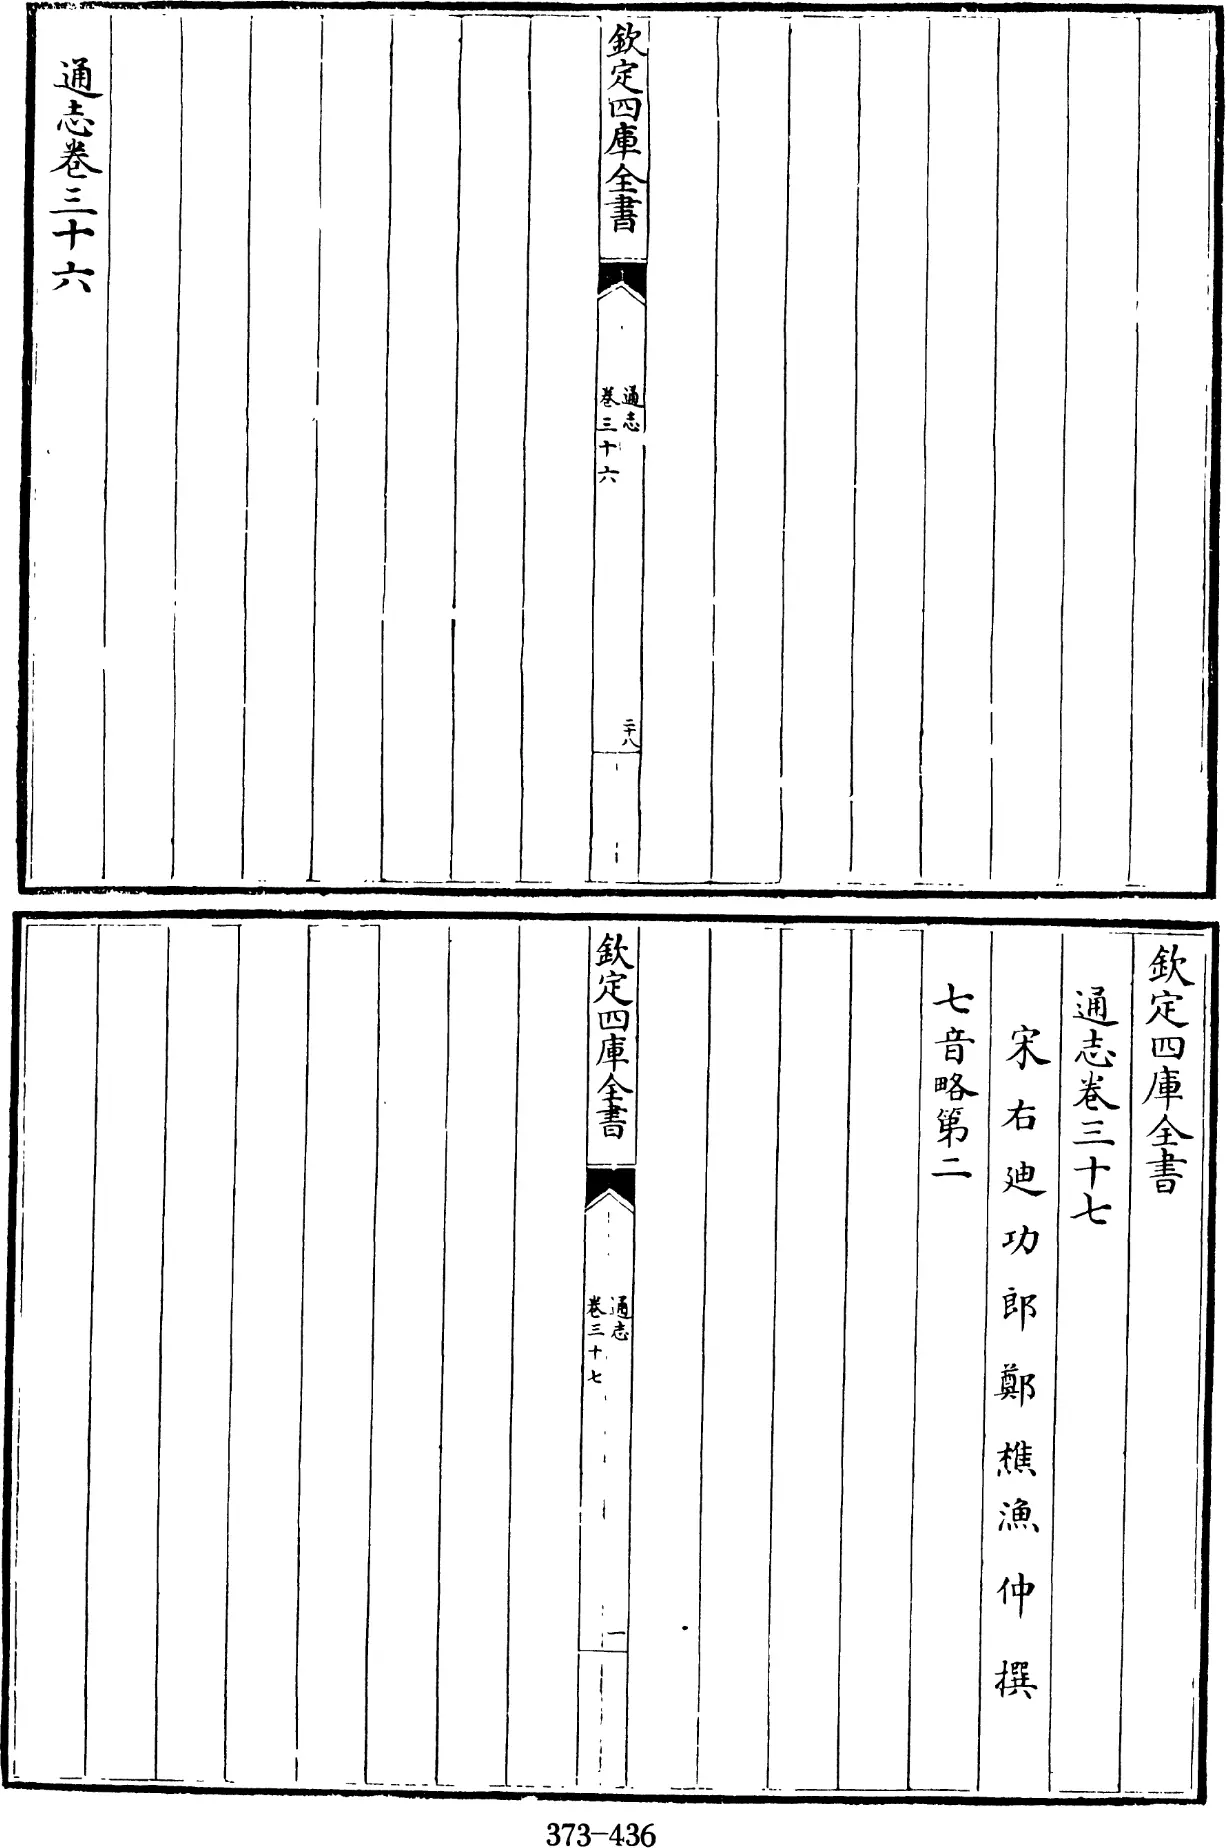 欽定四庫全書
通志
卷三十六
二十八
通志卷三十六
欽定四庫全書
通志卷三十七
宋右迪功郎鄭樵漁仲撰
七音略第二
欽定四庫全書
通志
卷三十七
一
373-436